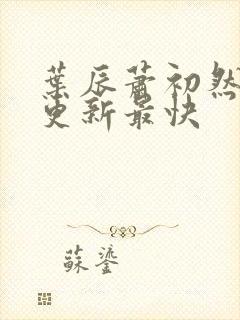 葉辰蕭初然
更新最快
蘇鎏